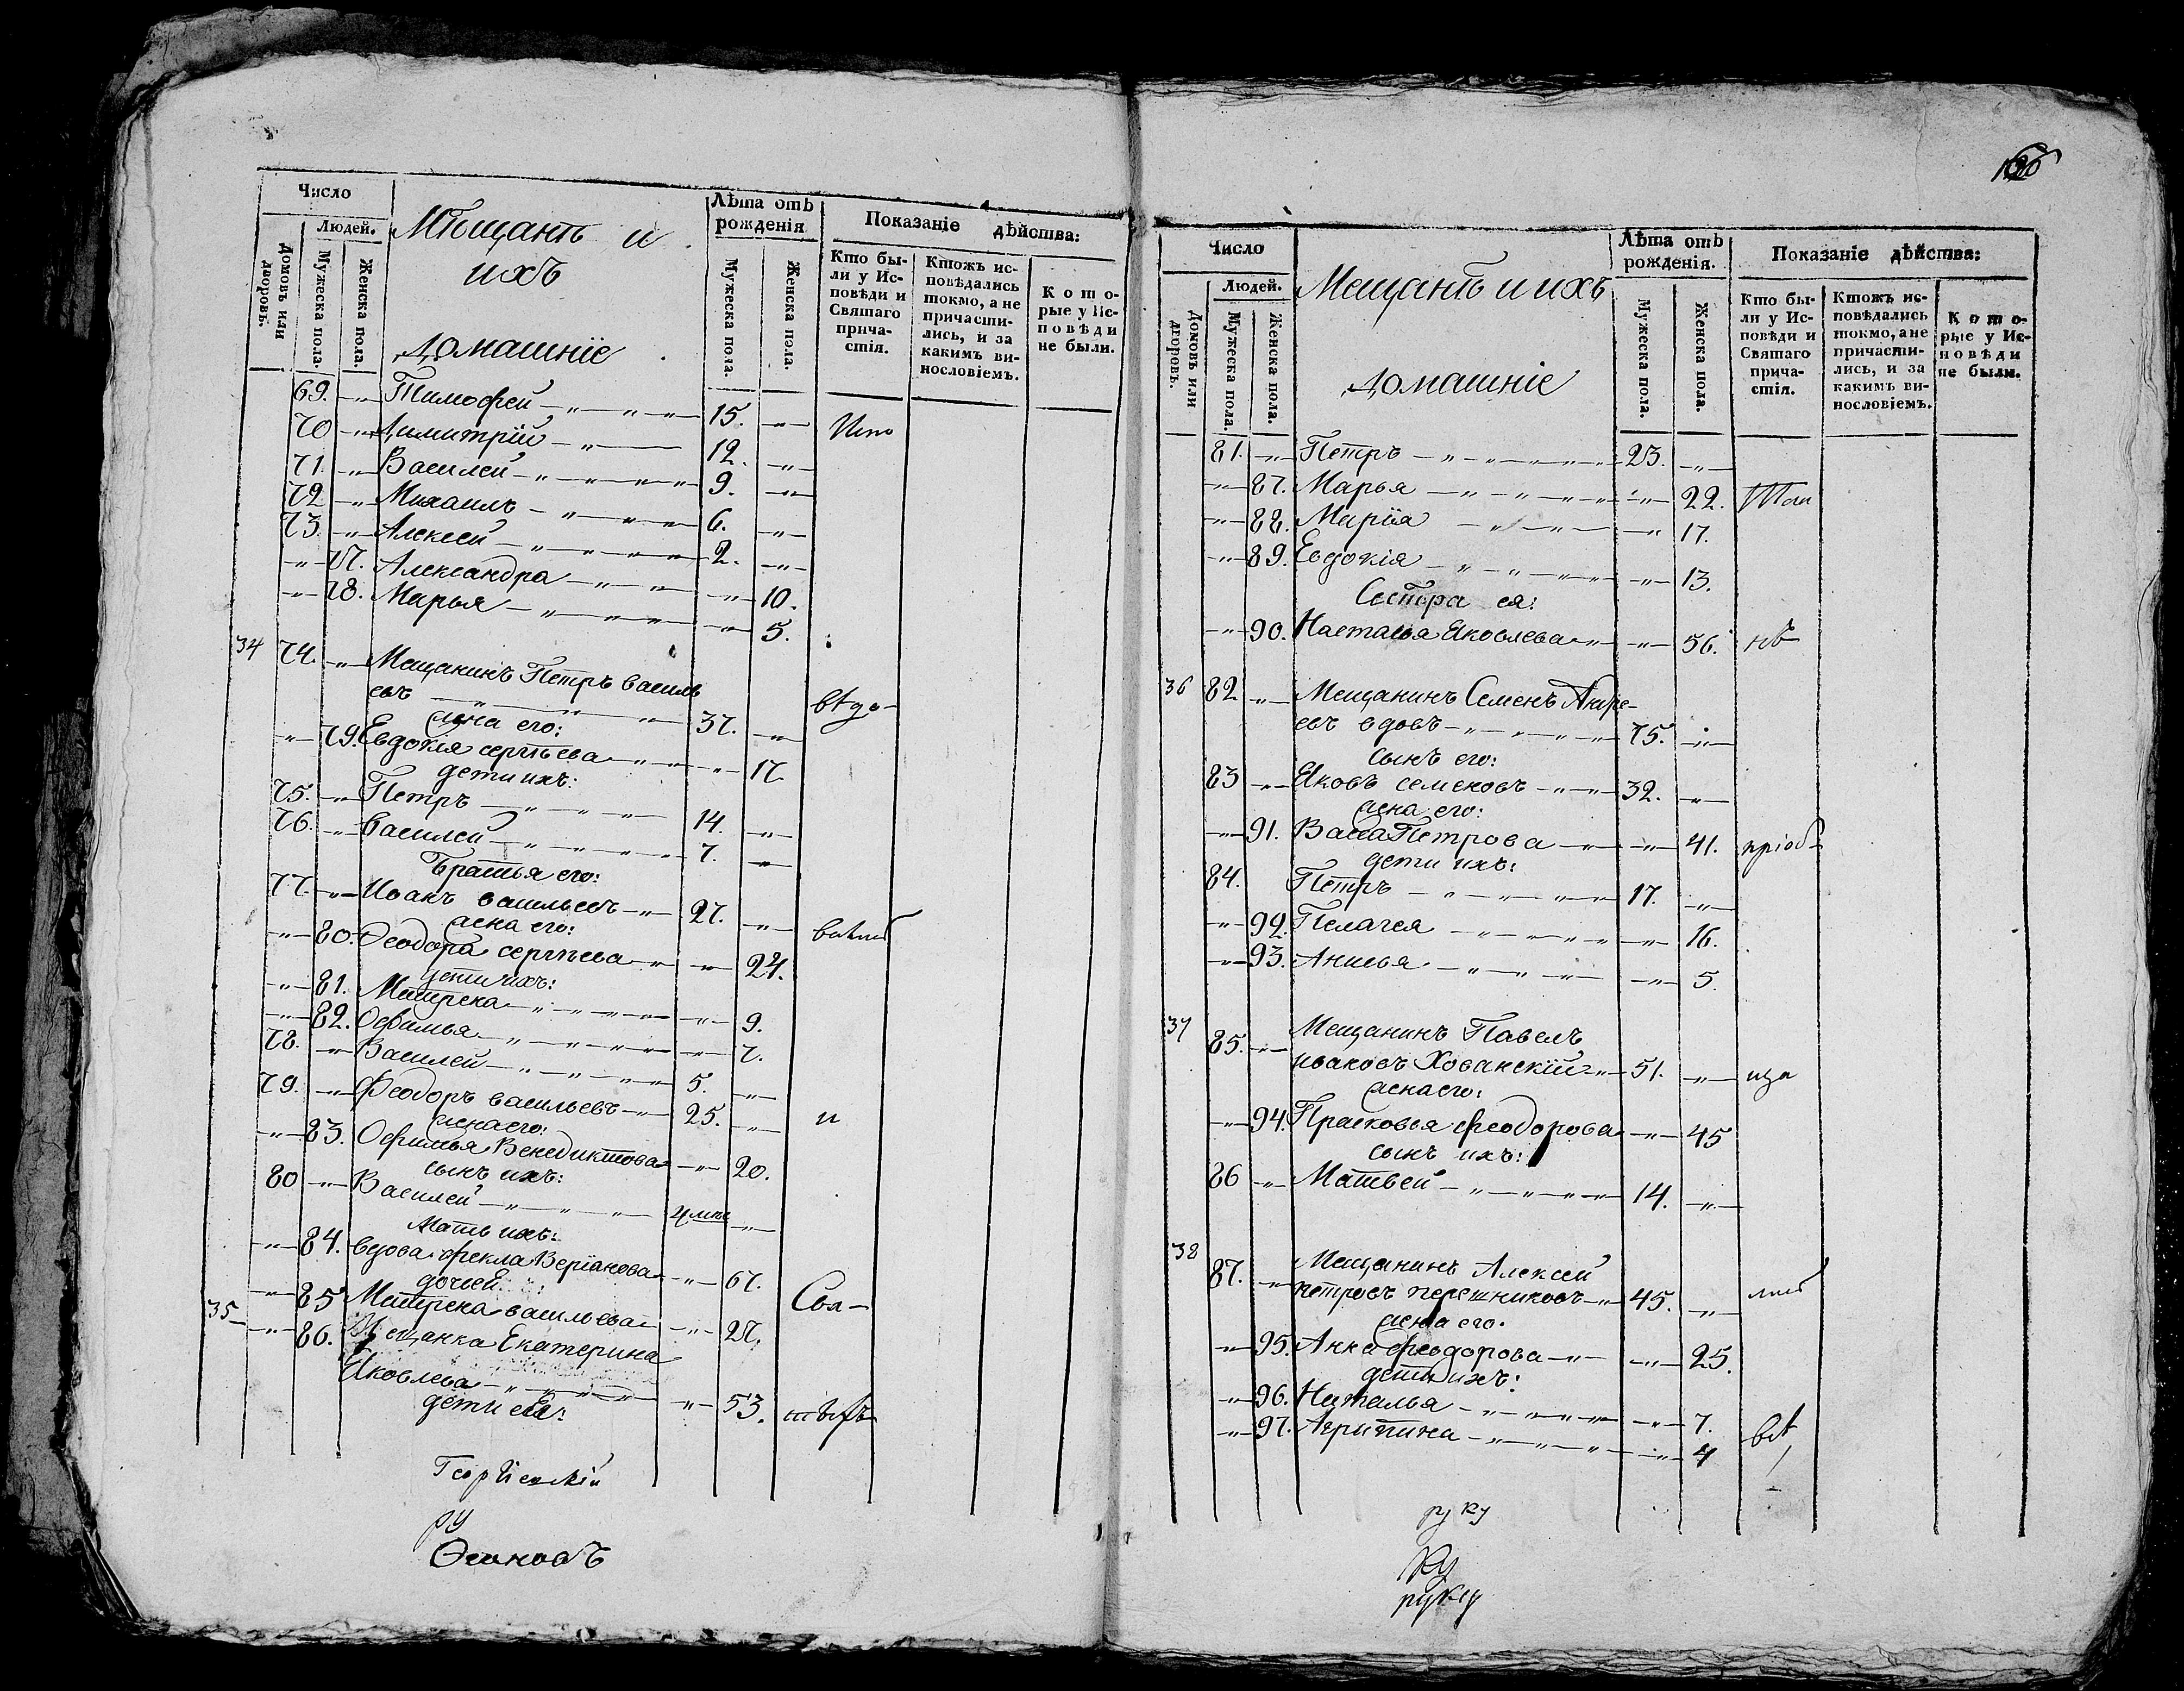 Число
Людей.
Домовъ или дворовъ.
Мужеска пола.
Женска пола.
Мѣщанъ и
ихъ
домашніе
Лѣта отъ рожденія
Мужеска пола.
Женска пола.
Показаніе дѣйства:
Кто бы-
ли у Ис-
повѣди и
Святаго
прича-
стія.
Ктожъ ис-
повѣдались
токмо, а не
причасти-
лись, и за
какимъ ви-
нословіемъ.
Кото-
рые у Ис-
повѣди
не были.
69. —„— Тимофей —„—„—„— 15. —„—
70 —„— Димитрій —„— 12. —„—
71. —„— Василей —„—„—„—„— 9. —„—
72 —„— Михаилъ —„—„—„— 6. —„—
73. —„— Алексей —„—„—„—„— 2. —„—
—„— 77. Александра —„—„—„— —„— 10.
—„— 78. Марья —„—„—„— —„— 5.
34 74. —„— Мещанинъ Петръ василь
евъ —„—„—„— 37. —„—
жена его:
—„— 79. Евдокія сергѣева —„—„— 17
дети ихъ:
75. —„— Петръ —„—„—„— 14. —„—
76. —„— Василей —„—„—„—„— 7. —„—
Братья его:
77. —„— Иванъ васильевъ —„— 27. —„—
жена его:
—„— 80. Феодора сергѣева —„— —„— 24.
дети ихъ:
—„— 81. Матрена —„—„—„—„— —„— 9.
—„— 82. Офимья —„—„—„—„— —„— 7.
78. —„— Василей —„—„—„—„— 5. —„—
79. —„— Феодоръ васильевъ —„— 25. —„— и
жена его:
—„— 83. Офимья Венедиктова —„— 20.
сынъ ихъ:
80 —„— Василей —„—„—„— 4 —„—
Мать ихъ:
—„— 84. вдова фекла —„— 67.
дочь ей:
—„— 85 Матрена васильева —„— 27. Свя—
35 —„— 86. Мещанка Екатерина
Яковлева —„—„—„— —„— 53.
дети ея:
Георгіевскій
ру
Число
Людей.
Домовъ или дворовъ.
Мужеска пола.
Женска пола.
Мещанъ и ихъ
домашніе
Лѣта отъ рожденія.
Мужеска пола.
Женска пола.
Показаніе дѣйства:
Кто бы-
ли у Ис-
повѣди и
Святаго
прича-
стія.
Ктожъ ис-
повѣдались
токмо, а не
причасти-
лись, и за
какимъ ви-
нословіемъ.
Кото-
рые у Ис-
повѣди
не были.
81. —„— Петръ —„—„—„—„— 23. —„—
—„— 87. Марья —„—„—„—„— —„— 22.
—„— 88. Марія —„—„— —„— 17.
—„— 89. Евдокія —„—„—„—„— —„— 13.
Сестра ея:
—„— 90. Настасья Яковлева —„— —„— 56.
36 82 —„— Мещанинъ Семенъ Андре-
евъ вдовъ —„—„—„— 75. —„—
сынъ его:
83 —„— Яковъ семеновъ —„—„— 32. —„—
жена его:
—„— 91. Васа Петрова —„— —„— 41. пріоб—
дети ихъ:
84. Петръ —„—„—„—„— 17. —„—
—„— 92. Пелагея —„—„—„—„— —„— 16.
—„— 93. Анисья —„—„—„— —„— 5.
37 85. —„— Мещанинъ Павелъ
ивановъ Хованскій —„— 51. —„— ща
жена его:
—„— 94. Прасковья феодорова —„— 45
сынъ ихъ:
86 —„— Матвей —„—„—„—„— 14. —„—
38 87. —„— Мещанинъ Алексей
петровъ —„— 45. —„—
жена его.
—„— 95. Анна феодорова —„— —„— 25.
дети ихъ:
—„— 96. Наталья —„—„—„— —„— 7.
—„— 97. Агрипина —„—„—„— —„— 4
руку
руку